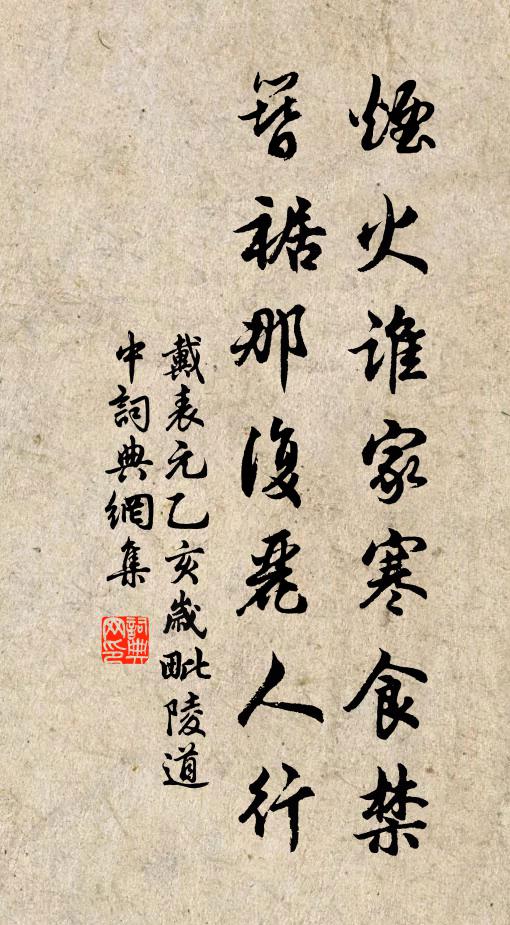 煙火誰家寒食禁
簪裾那復麗人行
戴表元乙亥歲毗陵道
中詞典網集
詞典
网印